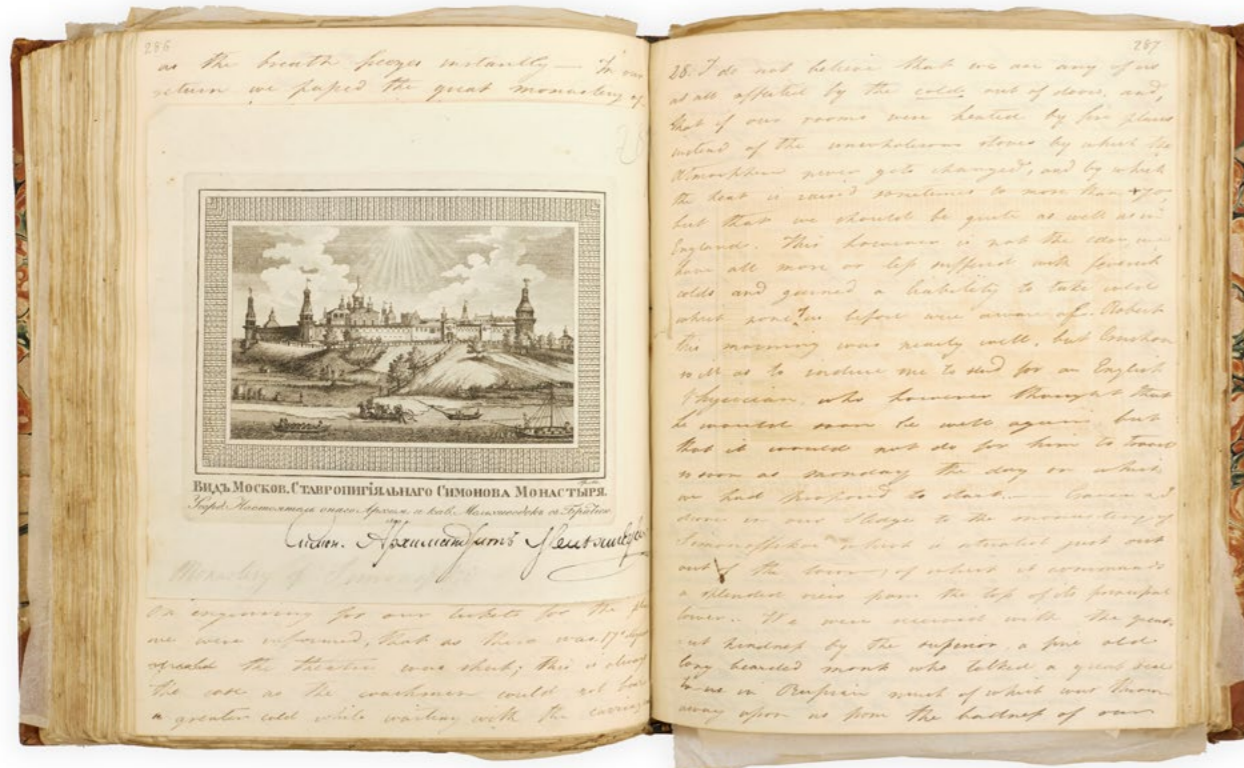 286
as the breath freezes instantly — In our
return we passed the great monastery of
ВИДЪ МОСКОВ. СТАВРОПИГІЯЛЬНАГО СИМОНОВА МОНАСТЫРЯ.
Monastery of
On engraving for our tickets for the
we were informed, that as there was 17°
the theatre was shut; this is always
the case as the coachmen could not bear
a greater cold while waiting with the carriages
287
28. I do not believe that we are any of us
at all affected by the cold out of doors, and,
that if our rooms were heated by fire places
instead of the unwholesome stoves by which the
atmosphere never gets changed, and by which
the heat is raised sometimes to more than 70,
but that we should be quite as well as in
England. This however is not the case, we
have all more or less suffered with feverish
colds and gained a liability to take cold
which none of us before were aware of. Robert
this morning was nearly well, but
so ill as to induce me to send for an English
Physician, who however thought that
he would soon be well again, but
that it would not do for him to travel
so soon as monday the day on which
we had proposed to start. —
drove in our sledge to the monastery of
which is situated just out
out of the town, of which it commands
a splendid view from the top of its principal
tower. We were received with the great
est kindness by the superior, a fine old
long bearded monk who talked a great deal
to us in Russian much of which was thrown
away upon us from the badness of our